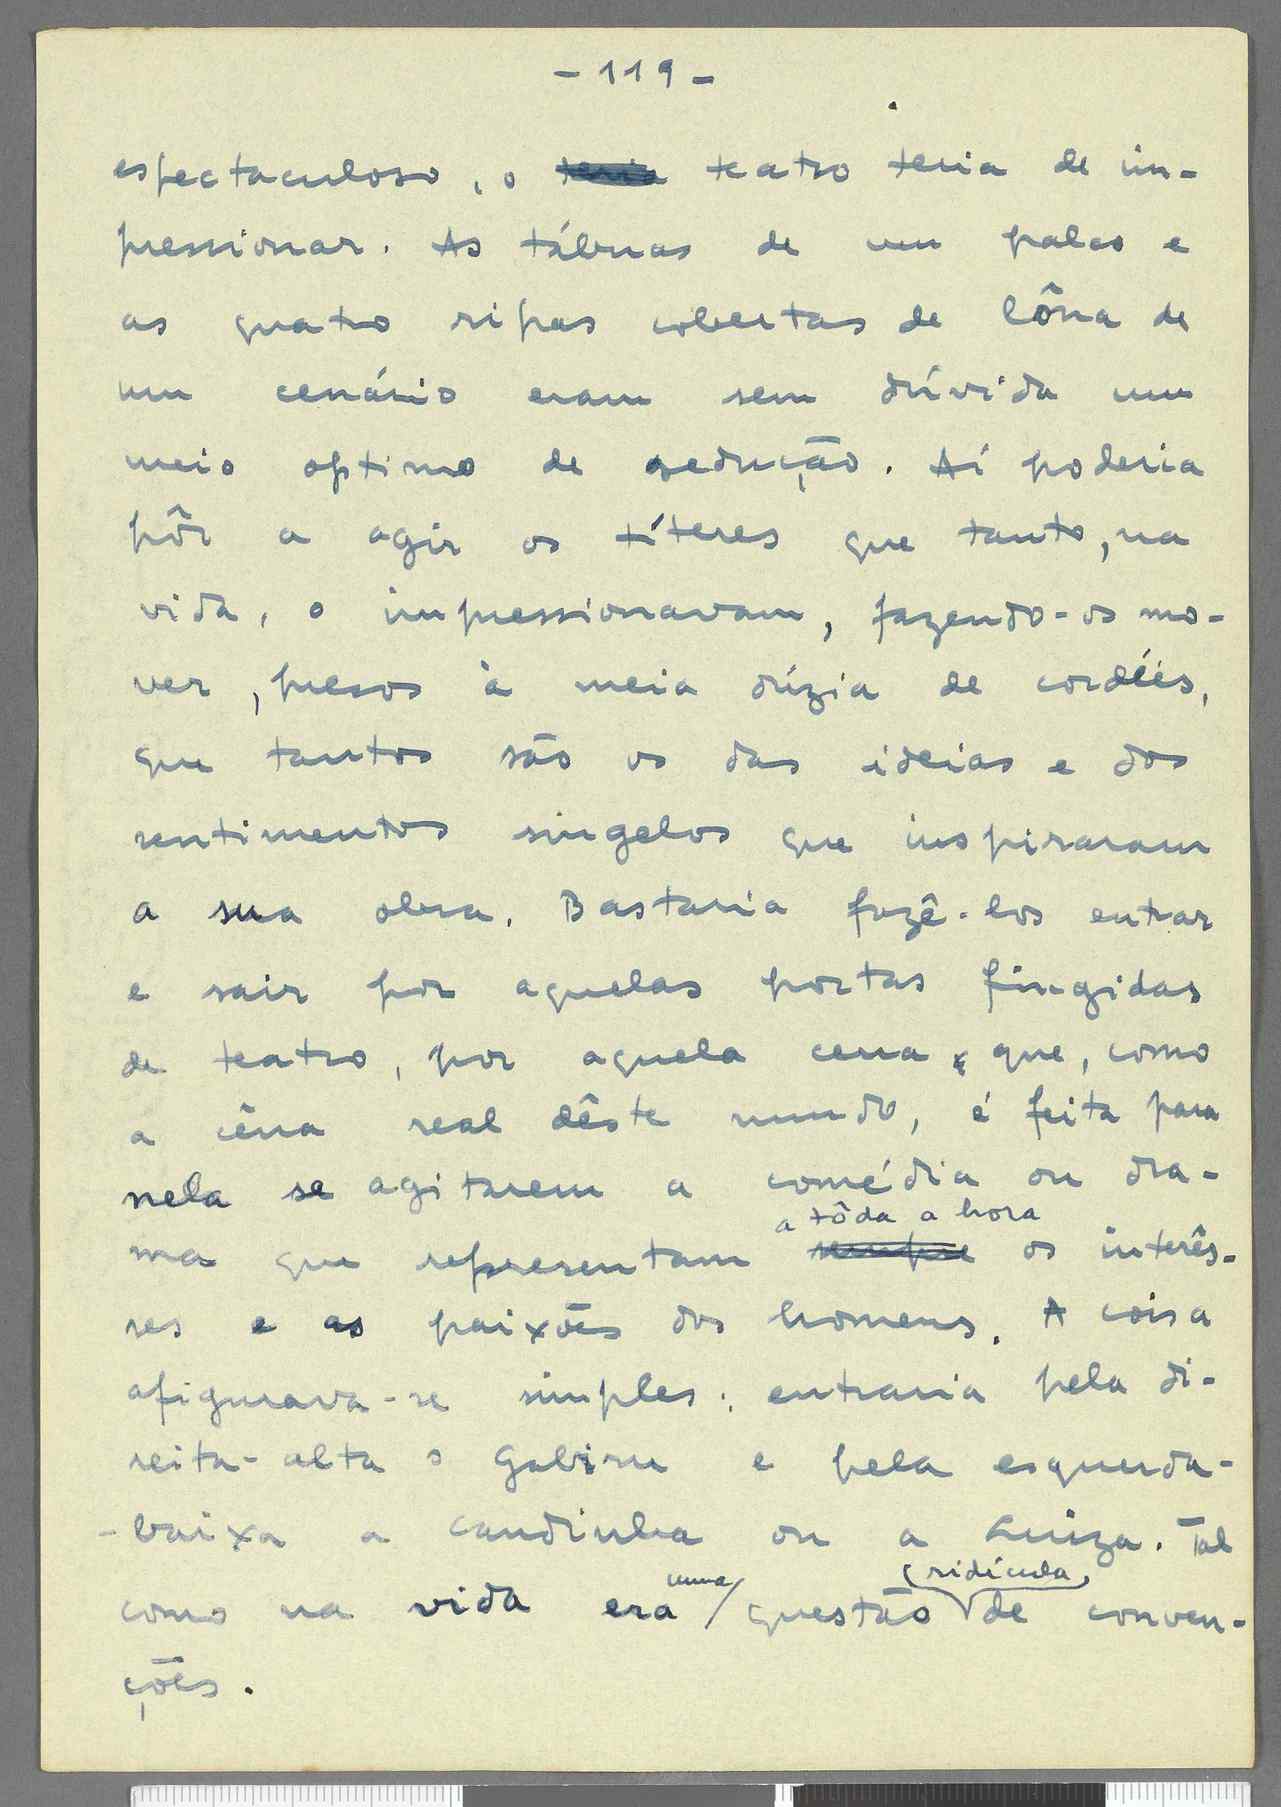 - 119 -
espectaculoso, o ~~teria~~ teatro teria de im-
pressionar. As tábuas de um palco e
as quatro ripas cobertas de lôna de
um cenário eram sem dúvida um
meio optimo de sedução. Aí poderia
pôr a agir os títeres que tanto, na
vida, o impressionavam, fazendo-os mo-
ver, presos à meia dúzia de cordéis,
que tantos são os das ideias e dos
sentimentos singelos que inspiraram
a sua obra. Bastaria fazê-los entrar
e sair por aquelas portas fingidas
de teatro, por aquela cena que, como
a cêna real dêste mundo, é feita para
nela se agitarem a comédia ou dra-
a tôda a hora
ma que representam ~~sempre~~ os interês-
ses e as paixões dos homens. A coisa
afigurava-se simples: entraria pela di-
reita-alta o Gabiru e pela esquerda-
-baixa a Candinha ou a Luiza. Tal
uma ridícula
como na vida era questão de conven-
ções.